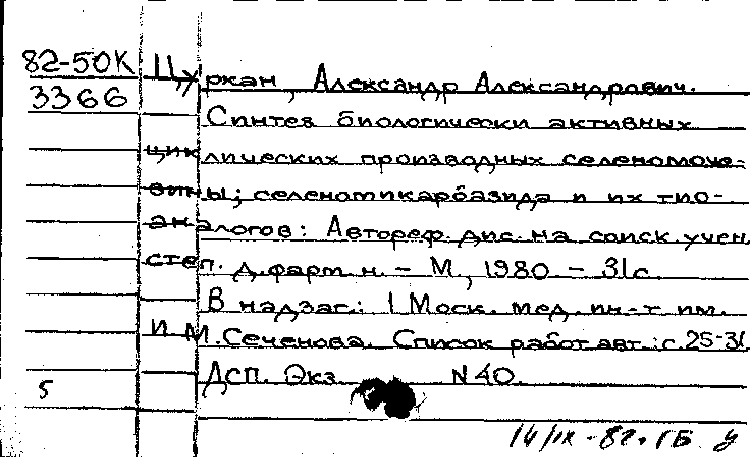 82-50К Цуркан, Александр Александрович.
3366
Синтез биологически активных
циклических производных селеномоче-
вины; селеносемикарбазида и их тио-
аналогов: Автореф. дис. на соиск. учен.
степ. д. фарм. н. - М., 1980. - 31 с.
В надзаг.: 1 Моск. мед. ин-т им.
И.М. Сеченова. Список работ авт.: с. 25-31.
5 Дсп. Экз. N 40.
14/IX-82. ГБ У